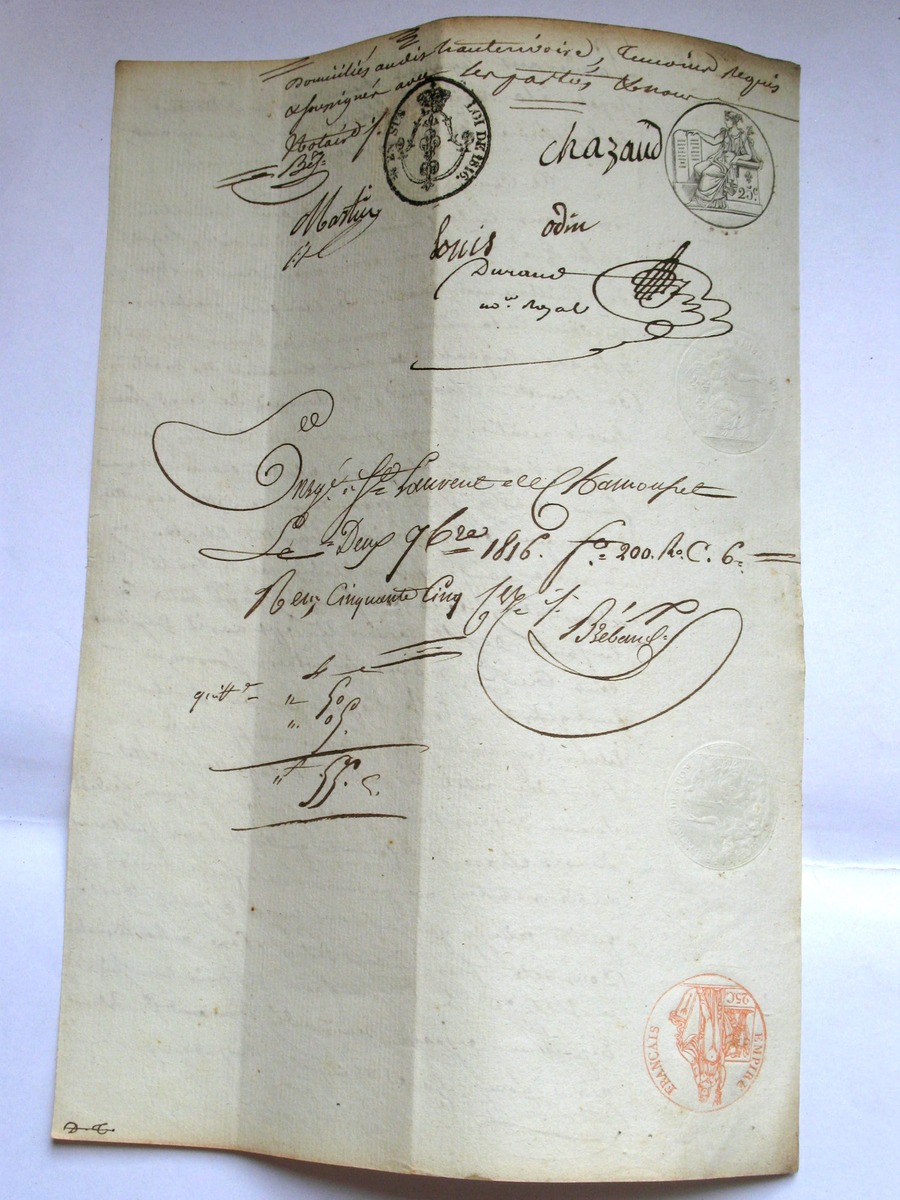 Domiciliés audit hauterivoire, Temoins Requis
& soussignés avec les parties & nous
Notaire /.
EN SUS LOI DE 1816.
25c
chazaud
Martin
Louis odin
Durand
no.re Royal
Enrg.é à S.t Laurent de Chamousset
Le Deux 9bre 1816. f.o 200. R.o C. 6.
Reçu Cinquante Cinq
Brébant
quitt.e
" 50
" 05.
" 55. c.
EMPIRE FRANÇAIS
25C